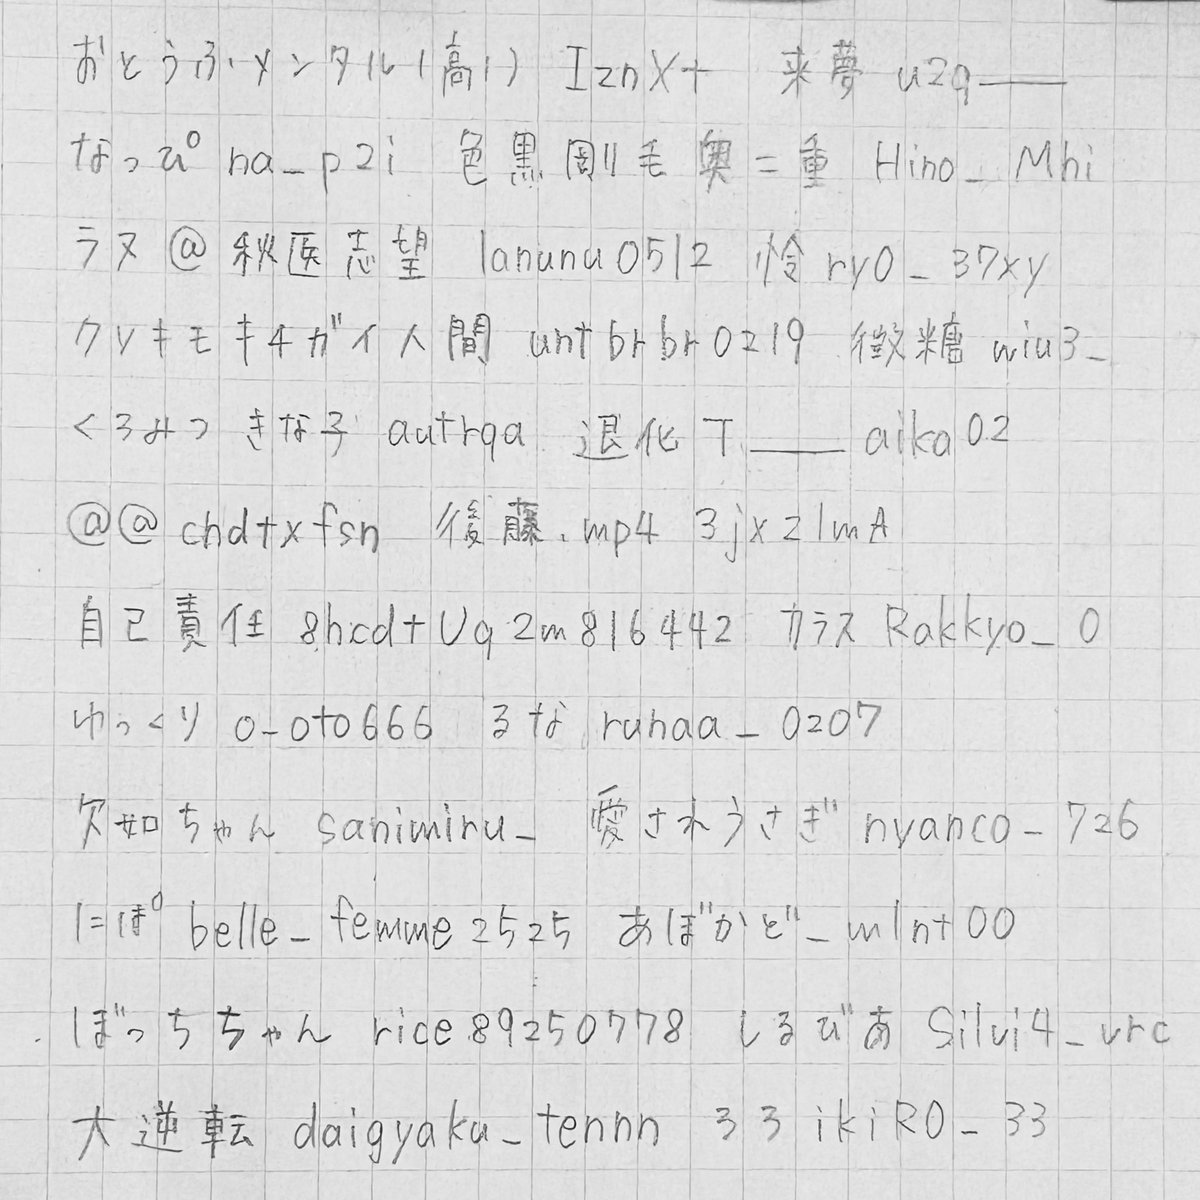 おとうふメンタル(高1) IznX+ 来夢 u2q___
なっぴ° na_p2i 色黒剛毛奥二重 Hino_Mhi
ラヌ@秋医志望 lanunu0512 怜 ry0_37xy
クソキモキチガイ人間 untbrbr0219 微糖 wiu3_
くろみつ きな子 autrqa 退化 T___aika02
@@ chdtxfsn 後藤.mp4 3jxz1mA
自己責任 8hcd+Uq2m816442 カラス Rakkyo_0
ゆっくり o_oto666 るな runaa_0207
欠如ちゃん sanimiru_ 愛されうさぎ nyanco_726
にぽ belle_femme2525 あぼかど_m1nt00
ぼっちちゃん rice89250778 しるびあ Silvi4_vrc
大逆転 daigyaku_tennn 33 ikiRO_33